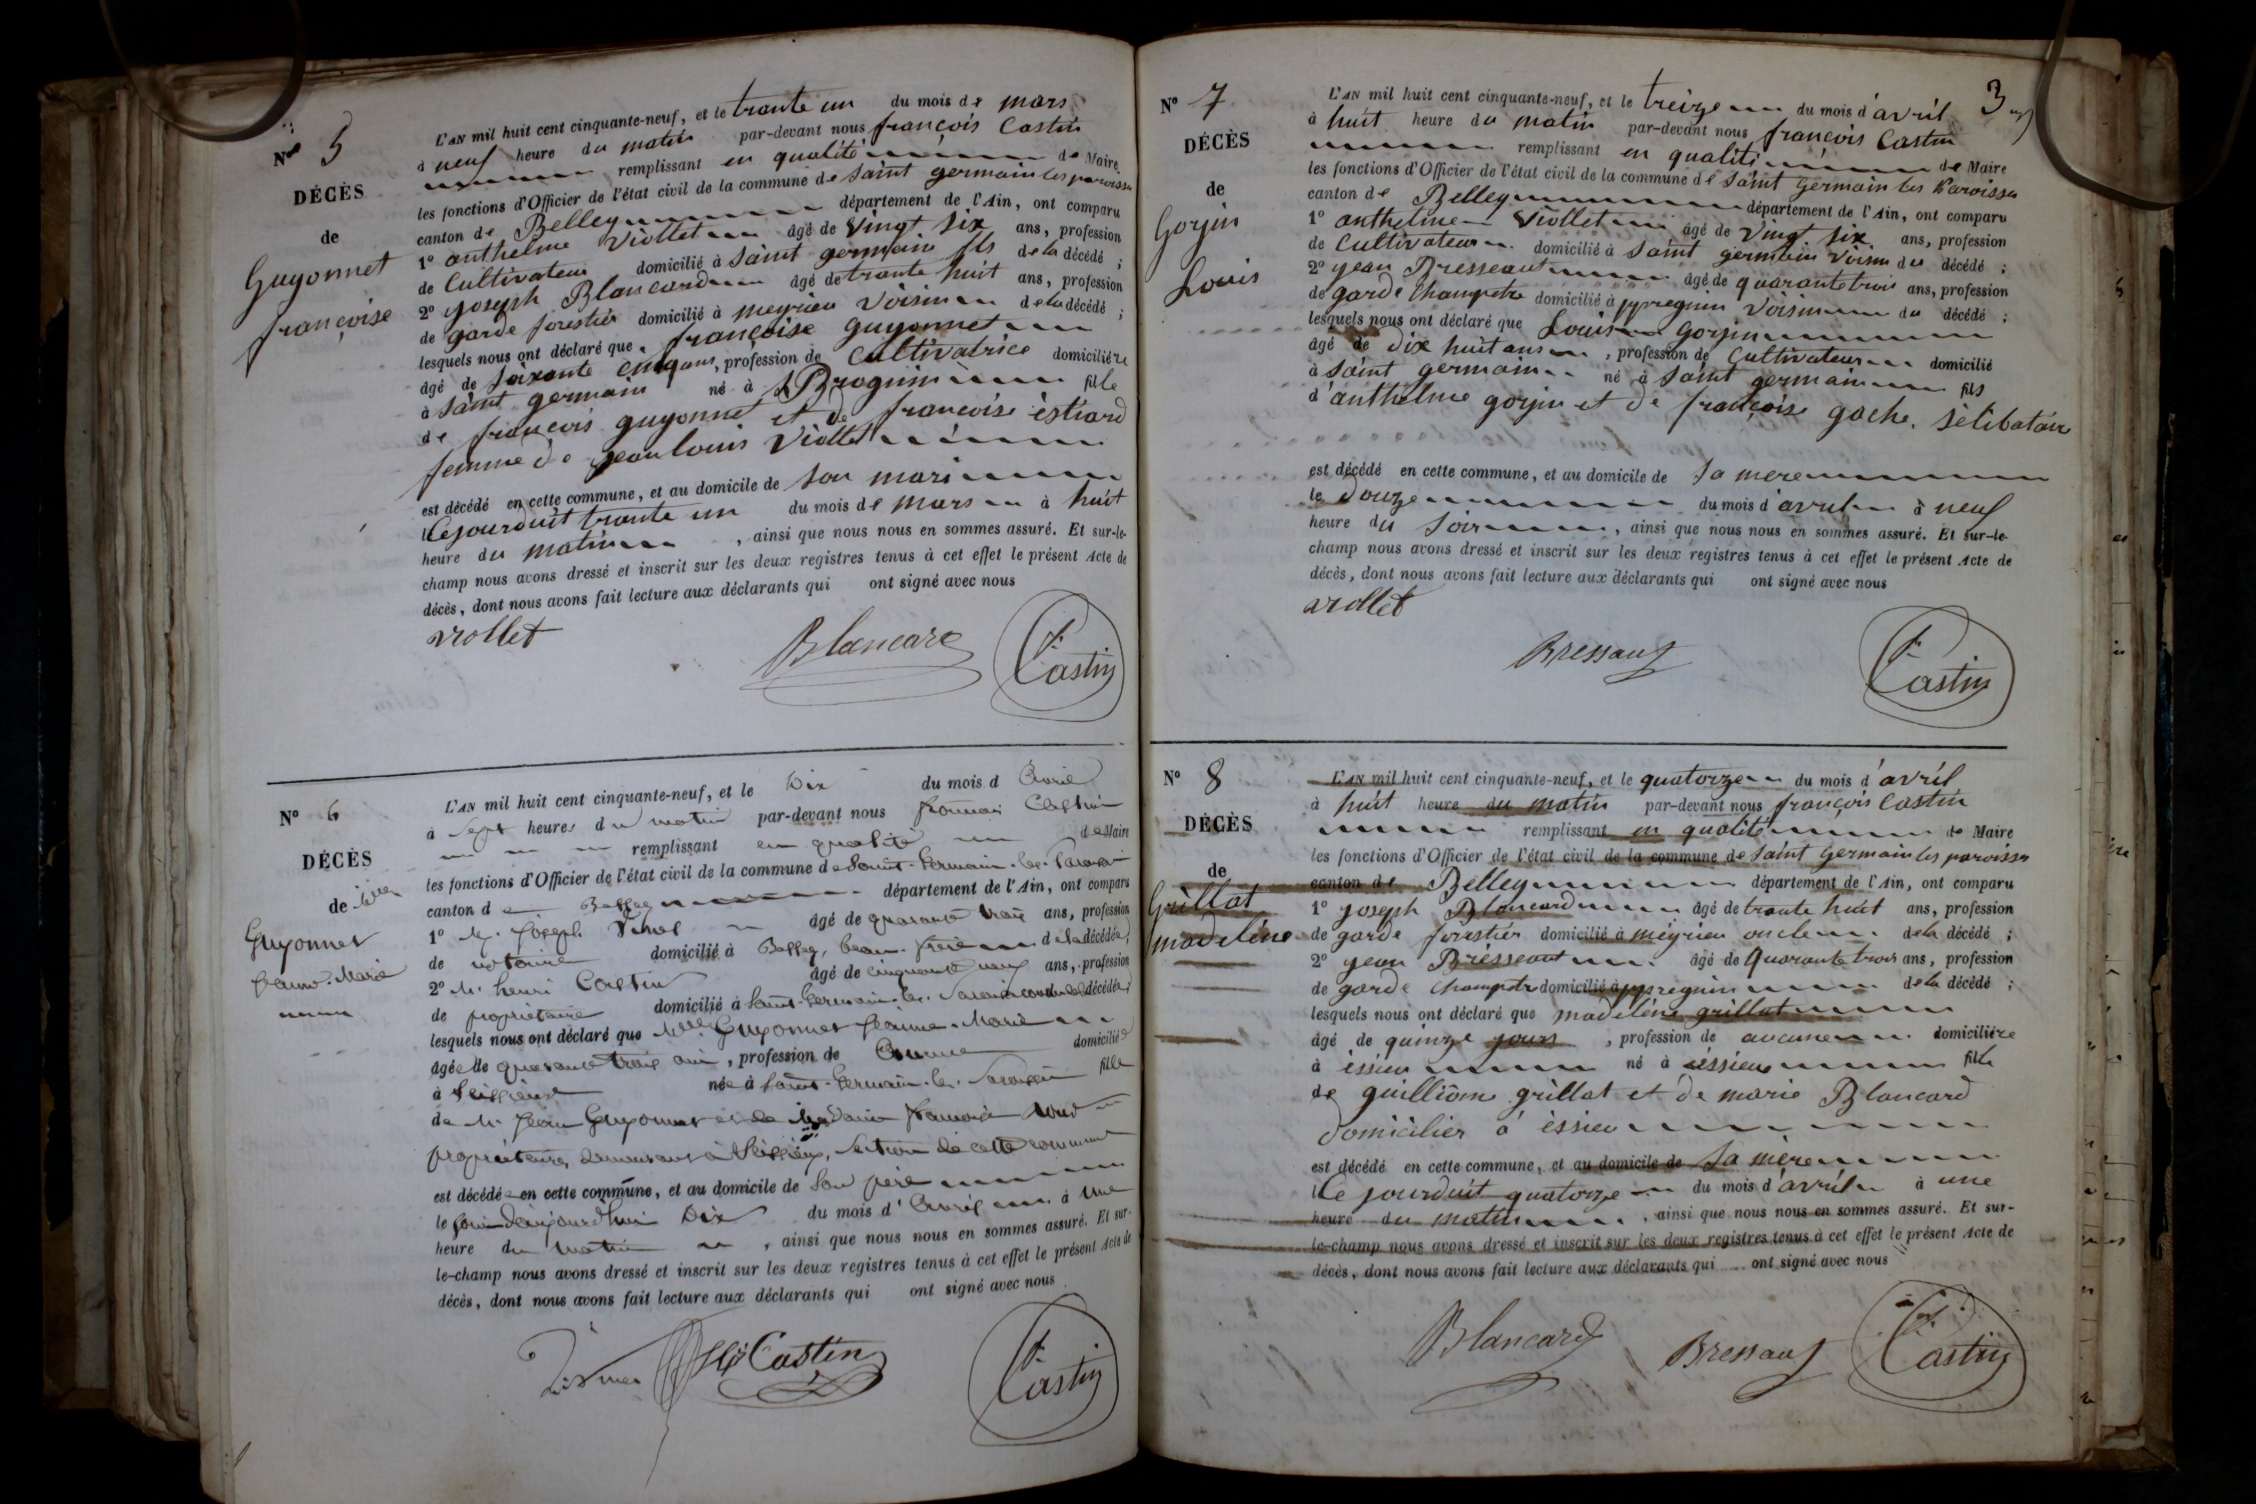 N° 5
DÉCÈS
de
Guyonnet
françoise
L'AN mil huit cent cinquante-neuf, et le trante un du mois de mars
à neuf heure du matin par-devant nous françois Castin
remplissant en qualité de Maire
les fonctions d'Officier de l'état civil de la commune de saint germain les paroisses
canton de Belley département de l'Ain, ont comparu
1° anthelme Viollet âgé de vingt six ans, profession
de Cultivateur domicilié à saint germain fils de la décédé ;
2° joseph Blancard âgé de trante huit ans, profession
de garde forestier domicilié à meyrieu voisin de la décédé ;
lesquels nous ont déclaré que françoise guyonnet
âgé de soixante cinq ans, profession de cultivatrice domiciliére
à saint germain né à Brognin fille
de françois guyonnet et de françoise estiard
femme de jean louis Viollet
est décédé en cette commune, et au domicile de son mari
le Cejourduit trante un du mois de mars à huit
heure du matin , ainsi que nous nous en sommes assuré. Et sur-le-
champ nous avons dressé et inscrit sur les deux registres tenus à cet effet le présent Acte de
décès, dont nous avons fait lecture aux déclarants qui ont signé avec nous
viollet
Blancard
f. Castin
N° 6
DÉCÈS
de Mlle
Guyonnet
Jeanne-Marie
L'AN mil huit cent cinquante-neuf, et le Dix du mois d Avril
à sept heures du matin par-devant nous francois Castin
remplissant en qualité de Maire
les fonctions d'Officier de l'état civil de la commune de Saint-Germain-les-Paroisses
canton de Belley département de l'Ain, ont comparu
1° M. Joseph âgé de quarante trois ans, profession
de notaire domicilié à Belley, beau-frère de la décédée ;
2° M. henri Castin âgé de cinquante neuf ans, profession
de propriétaire domicilié à Saint-Germain-les-Paroisses de la décédée ;
lesquels nous ont déclaré que Mlle Guyonnet Jeanne-Marie
âgée de quarante trois ans, profession de aucune domiciliée
à née à Saint-Germain-les-Paroisses fille
de M. Jean Guyonnet et de Madame francoise
propriétaires demeurant à section de cette commune
est décédée en cette commune, et au domicile de son père
le jour d'aujourd'hui Dix du mois d' Avril à une
heure du matin , ainsi que nous nous en sommes assuré. Et sur-
le-champ nous avons dressé et inscrit sur les deux registres tenus à cet effet le présent Acte de
décès, dont nous avons fait lecture aux déclarants qui ont signé avec nous
Castin
f. Castin
3
N° 7
DÉCÈS
de
Gojin
Louis
L'AN mil huit cent cinquante-neuf, et le treize du mois d'avril
à huit heure du matin par-devant nous françois Castin
remplissant en qualité de Maire
les fonctions d'Officier de l'état civil de la commune de saint germain les Paroisses
canton de Belley département de l'Ain, ont comparu
1° anthelme Viollet âgé de vingt six ans, profession
de cultivateur domicilié à saint germain voisin du décédé ;
2° jean Bresseaut âgé de quarante trois ans, profession
de garde champetre domicilié à ppregnin voisin du décédé ;
lesquels nous ont déclaré que Louis gojin
âgé de dix huit ans , profession de Cultivateur domicilié
à saint germain né à saint germain fils
d'anthelme gojin et de françoise gache. sélibataire
est décédé en cette commune, et au domicile de sa mere
le douze du mois d'avril à neuf
heure du soir , ainsi que nous nous en sommes assuré. Et sur-le-
champ nous avons dressé et inscrit sur les deux registres tenus à cet effet le présent Acte de
décès, dont nous avons fait lecture aux déclarants qui ont signé avec nous
viollet
Bressaut
f. Castin
N° 8
DÉCÈS
de
Grillat
madelène
L'AN mil huit cent cinquante-neuf, et le quatorze du mois d'avril
à huit heure du matin par-devant nous françois Castin
remplissant en qualité de Maire
les fonctions d'Officier de l'état civil de la commune de saint germain les paroisses
canton de Belley département de l'Ain, ont comparu
1° joseph Blancard âgé de trante huit ans, profession
de garde forestier domicilié à méyrieu oncle de la décédé ;
2° jean Brésseaut âgé de quarante trois ans, profession
de garde champetre domicilié à ppregnin de la décédé ;
lesquels nous ont déclaré que madelène grillat
âgé de quinze jours , profession de aucune domiciliére
à éssieu né à éssieu fille
de guilliôme grillat et de marie Blancard
domicilier à éssieu
est décédé en cette commune, et au domicile de sa mère
le Ce jourduit quatorze du mois d'avril à une
heure du matin , ainsi que nous nous en sommes assuré. Et sur-
le-champ nous avons dressé et inscrit sur les deux registres tenus à cet effet le présent Acte de
décès, dont nous avons fait lecture aux déclarants qui ont signé avec nous
Blancard
Bressaut
f. Castin